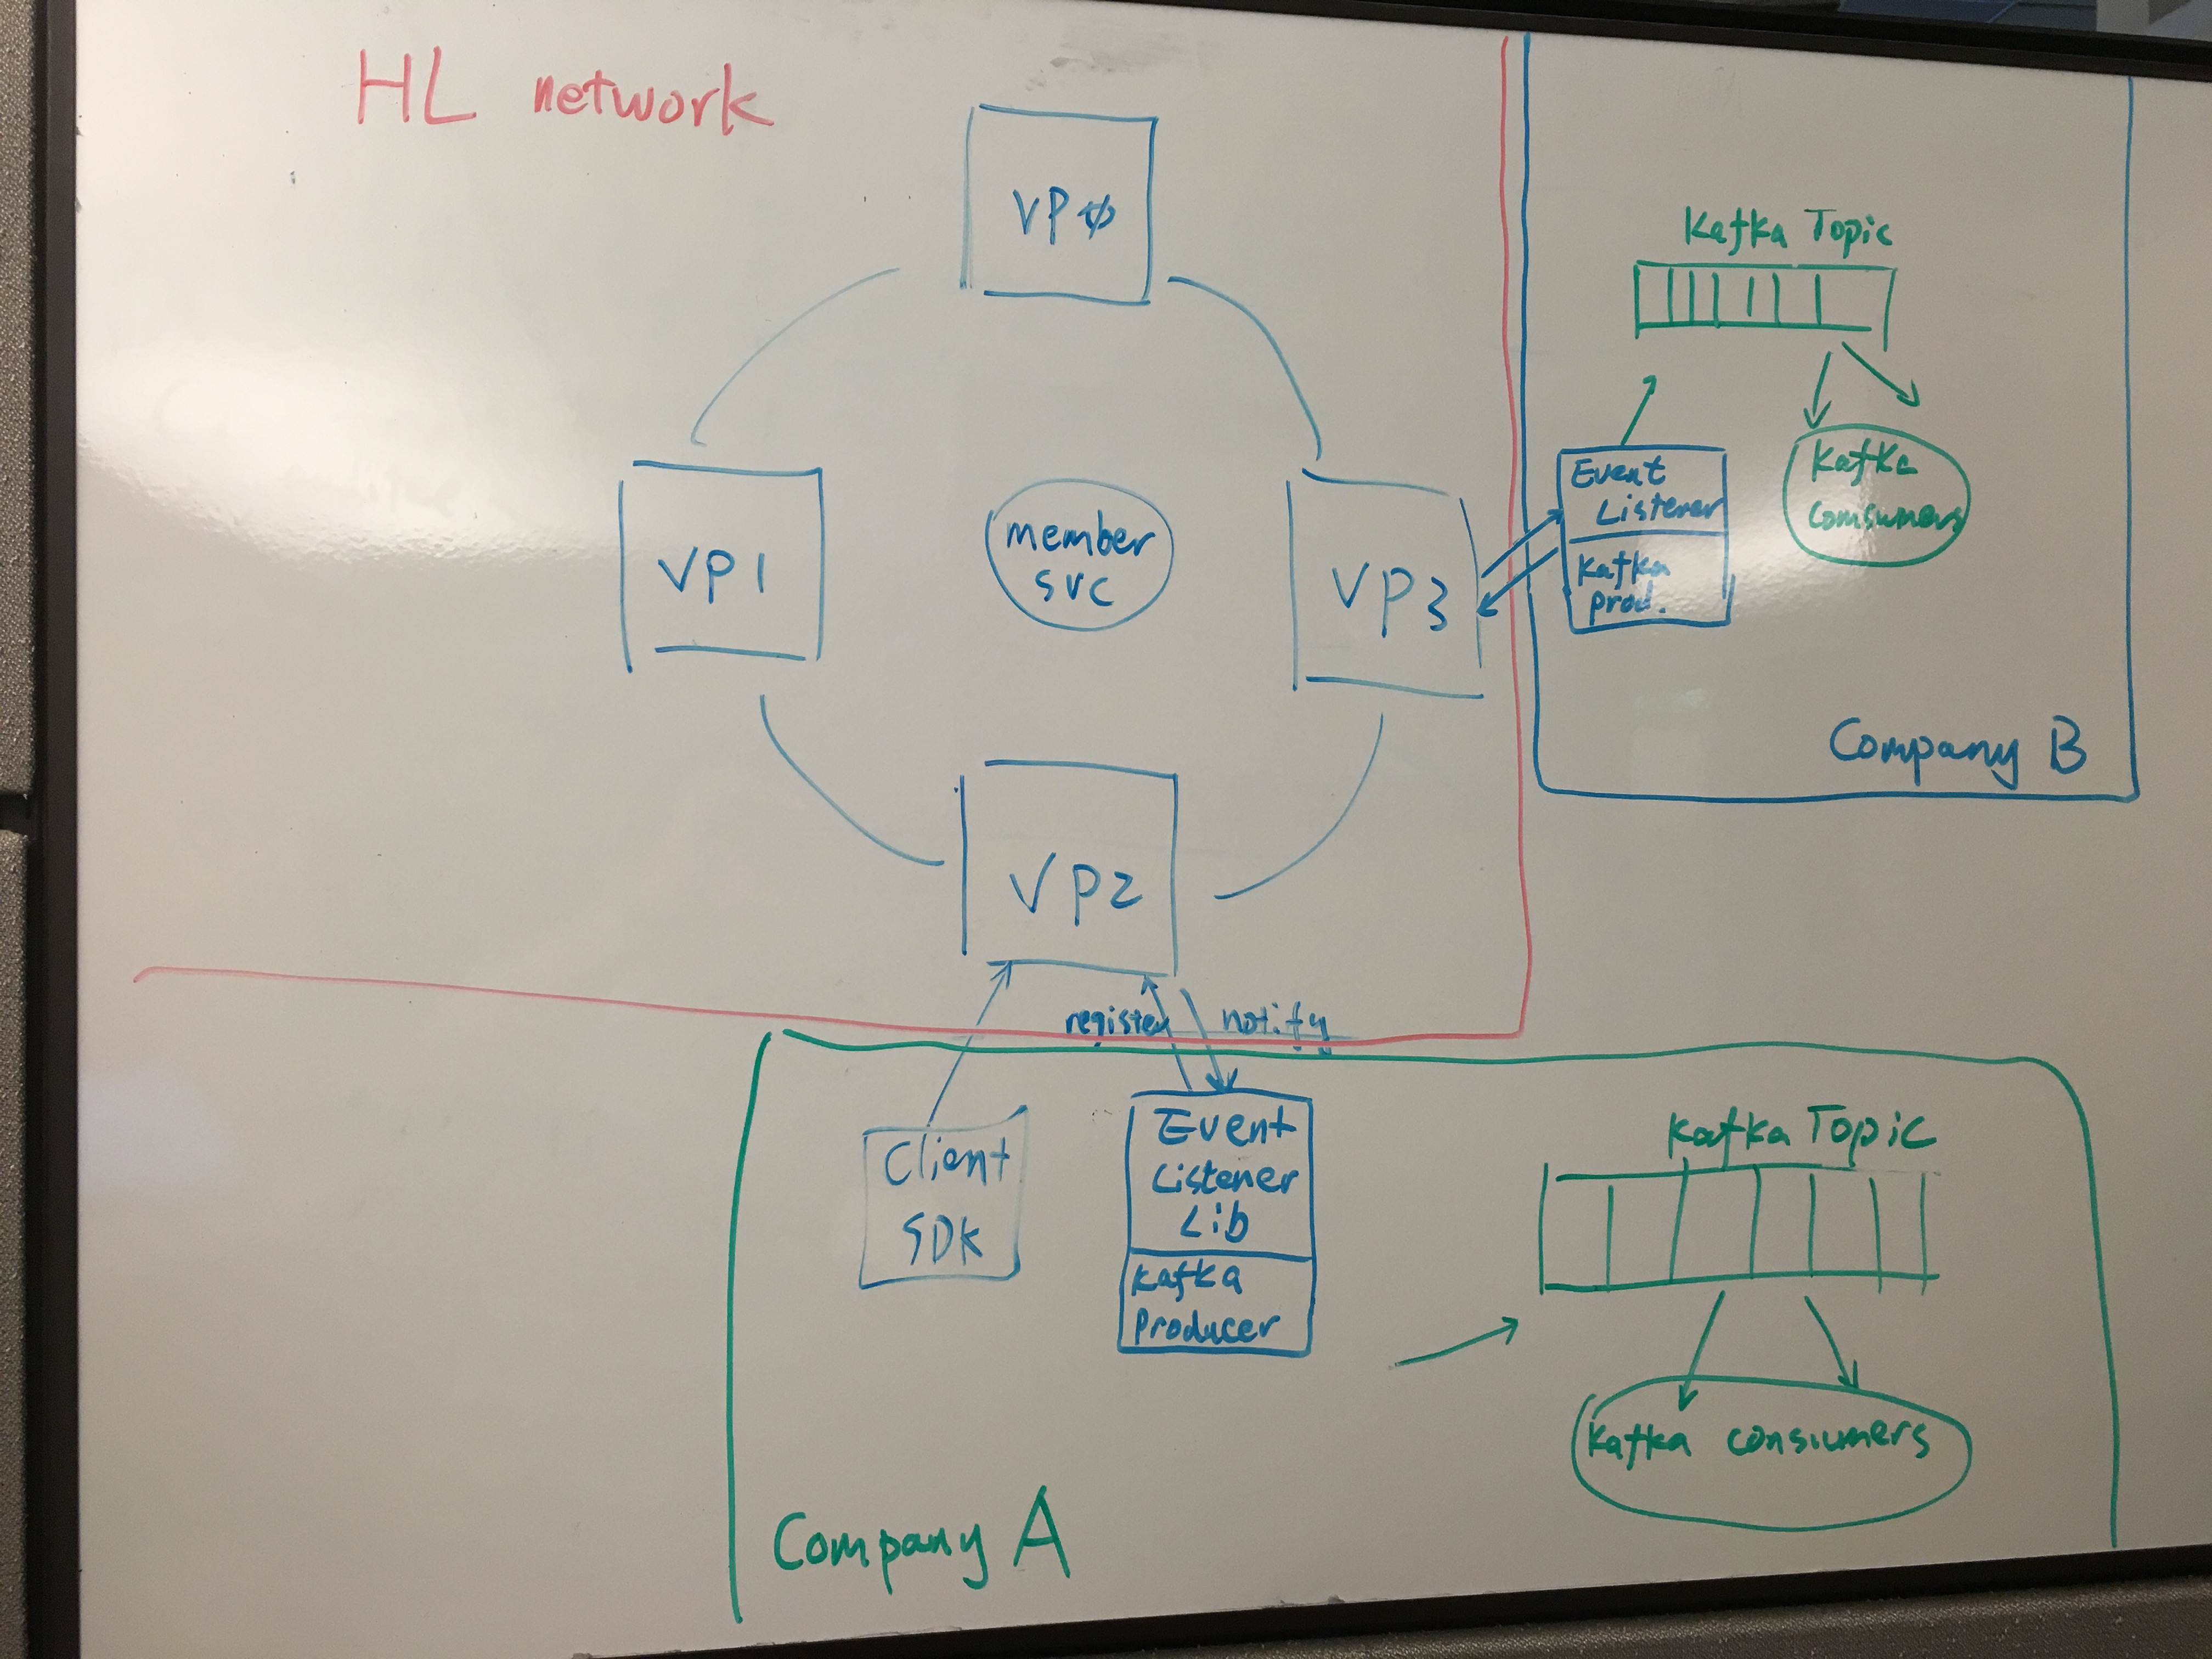 HL network
VPØ
VP1
member
svc
VP3
VP2
register
notify
Kafka Topic
Event
Listener
Kafka
prod.
Kafka
Comsumers
Company B
Client
SDK
Event
Listener
Lib
Kafka
Producer
Kafka Topic
Kafka consumers
Company A